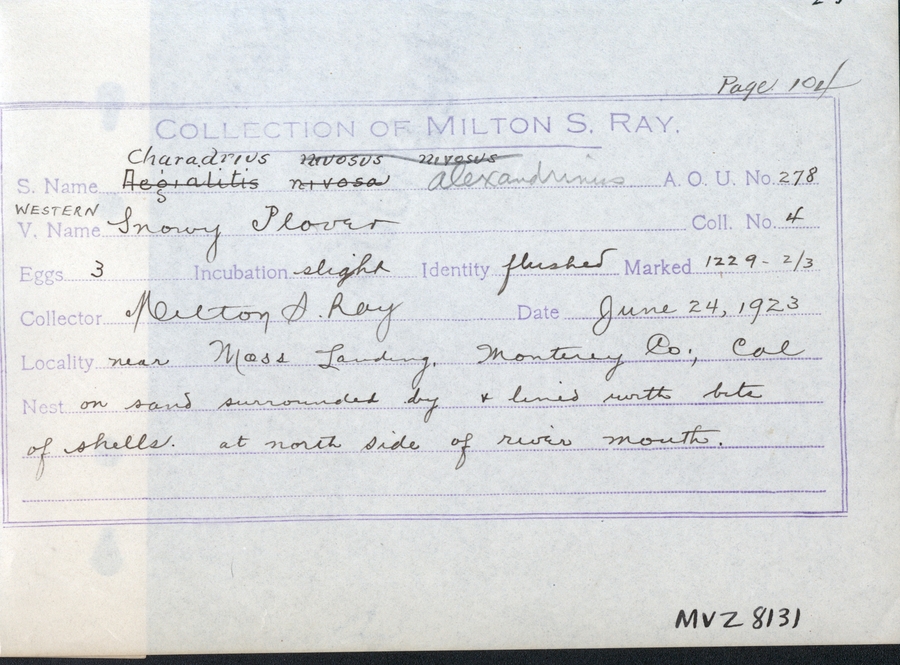 Page 104
COLLECTION OF MILTON S. RAY.
Charadrius nivosus nivosus
S. Name Aegialitis nivosa alexandrinus A. O. U. No. 278
WESTERN
V. Name Snowy Plover Coll. No. 4
Eggs 3 Incubation slight Identity flushed Marked 1229-2/3
Collector Milton S. Ray Date June 24, 1923
Locality near Moss Landing, Monterey Co., Cal
Nest on sand surrounded by & lined with bits
of shells. at north side of river mouth.
MVZ 8131